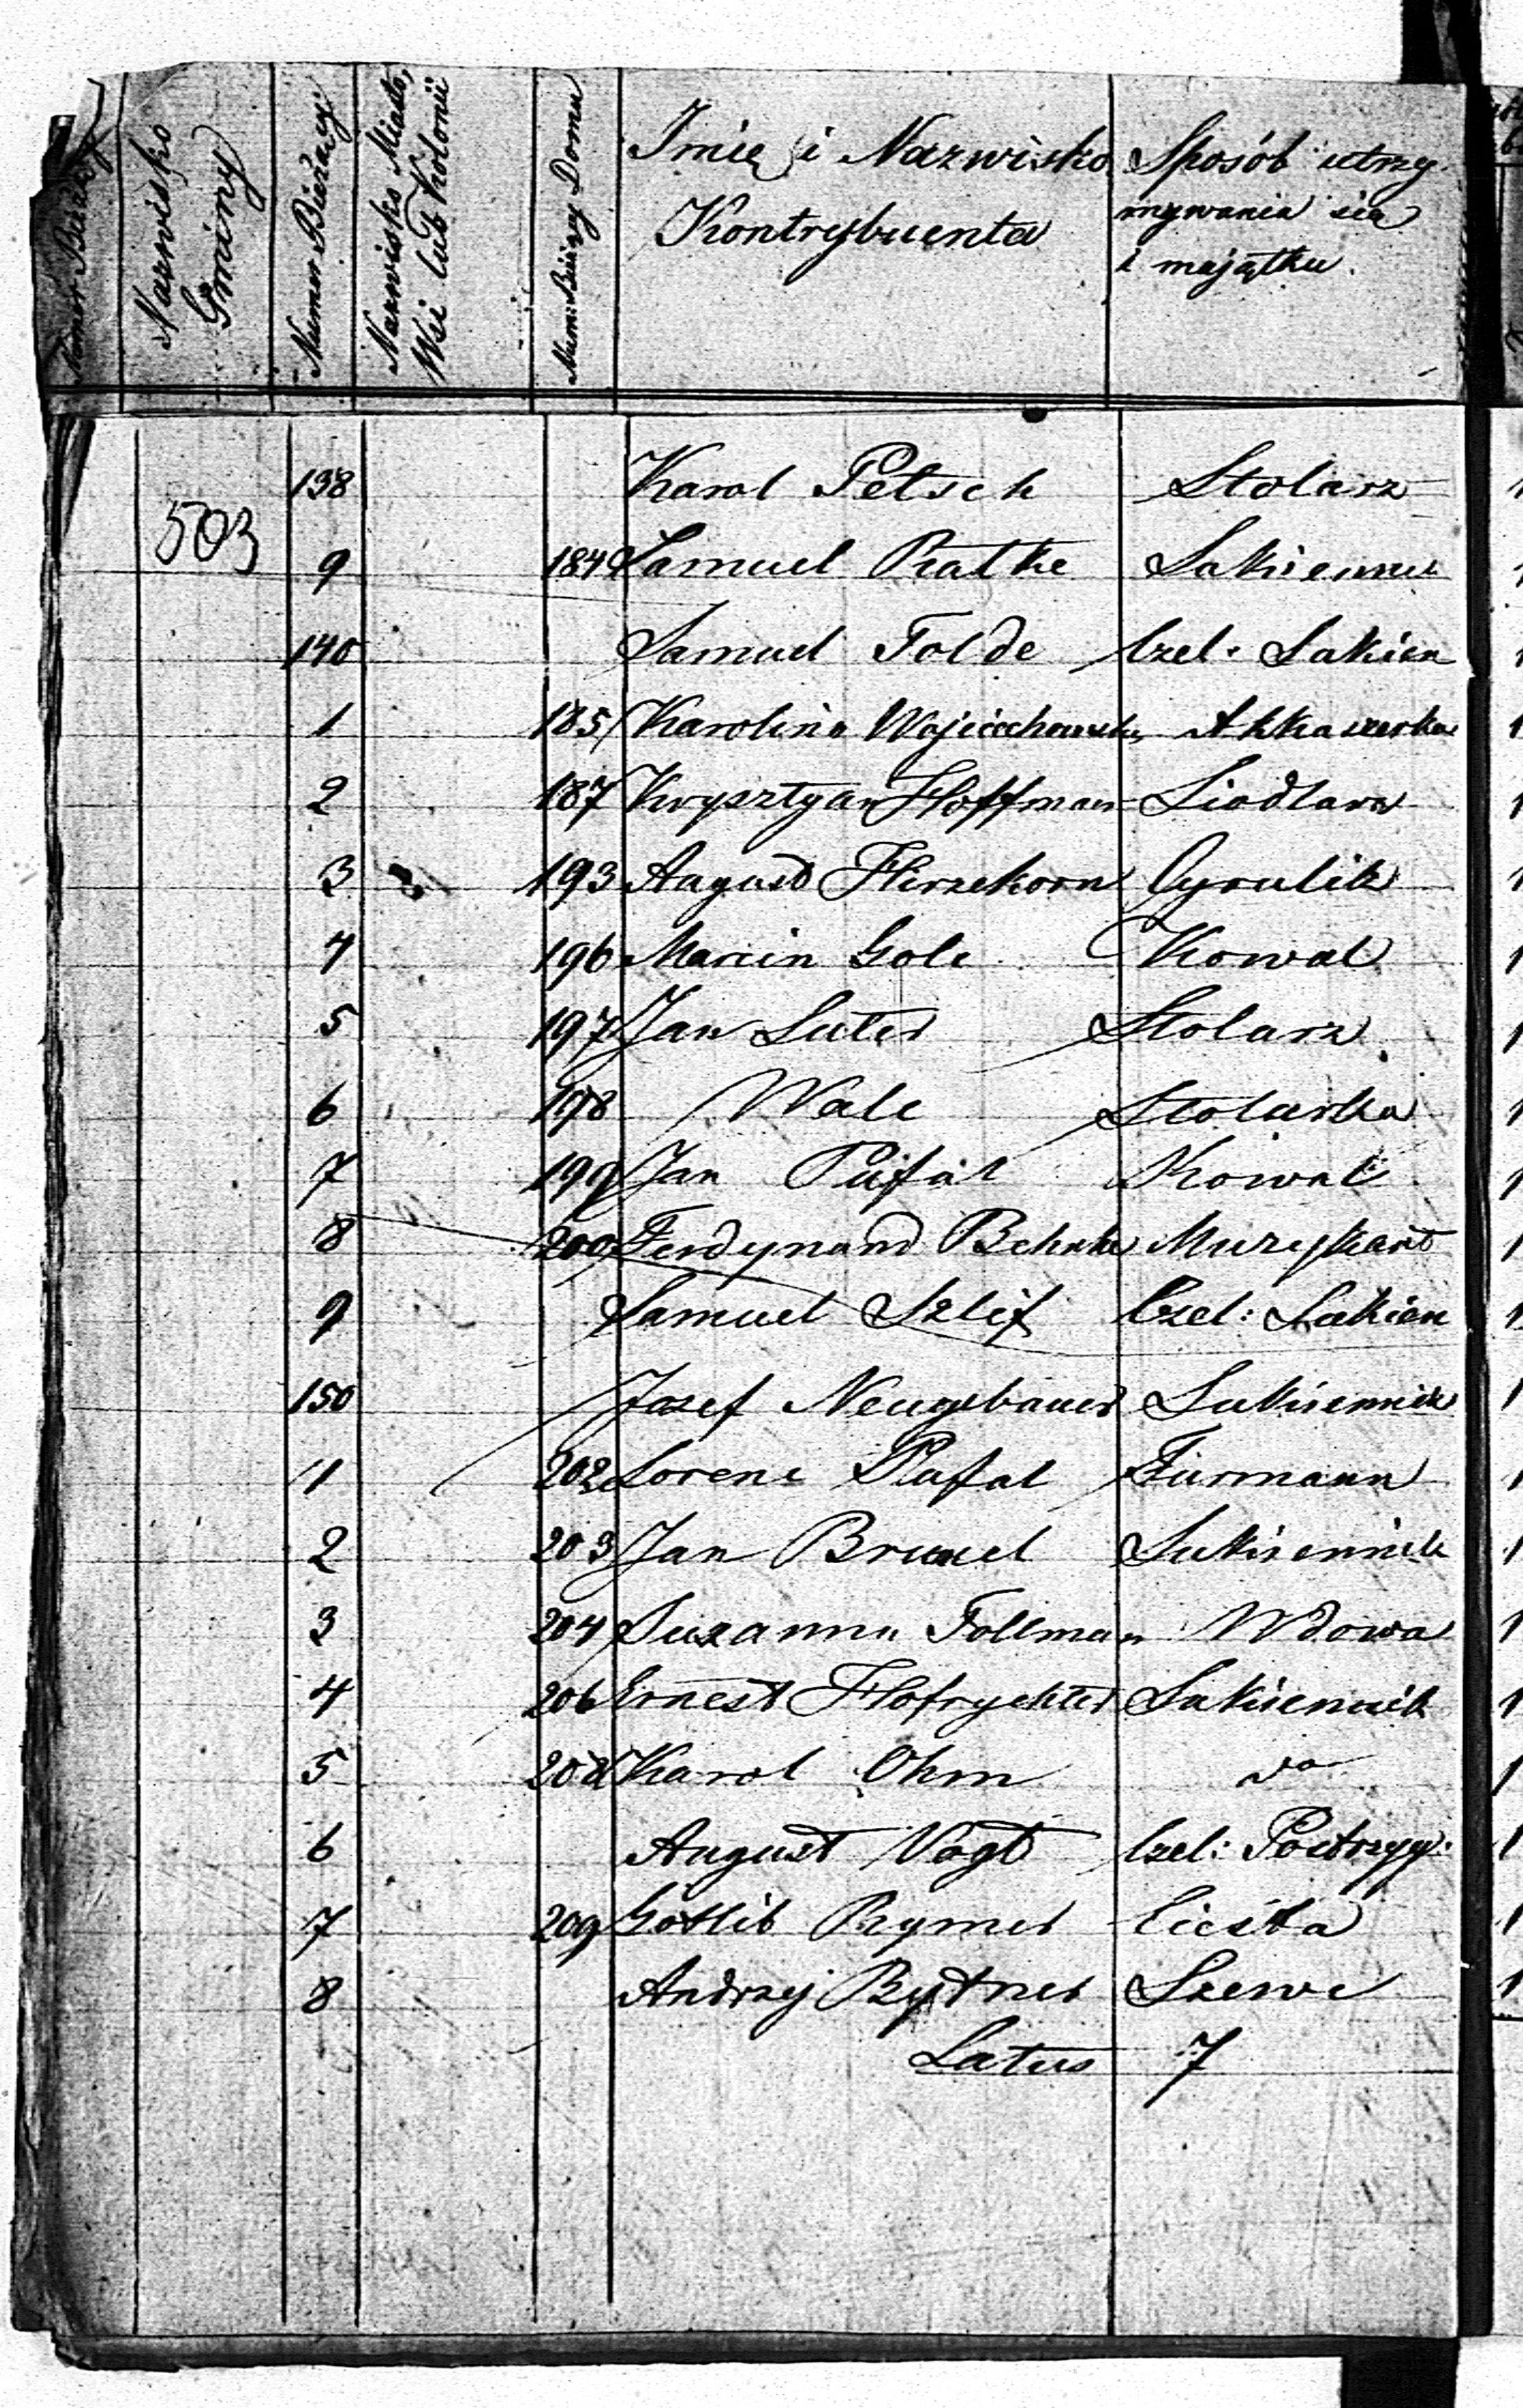 Numer Bieżący
Nazwisko Gminy
Numer Bieżący
Nazwisko Miasta, Wsi lub Kolonii
Num: Bieżący Domu
Imie i Nazwisko Kontrybuenta
Sposób utrzymywania się i majątku.
503
138 Karol Petsch Stolarz
9 184 Samuel Ratke Sukienni
140 Samuel Folde Czel. Sukien
1 185 Karolina Wojciechowska Akkuszerka
2 187 Krysztyan Hoffman Siodlarz
3 193 August Hirzekorn Cyrulik
4 196 Marcin Golc Kowal
5 197 Jan Suter Stolarz
6 198 Walc Stolarka
7 199 Jan Pufal Kowal
8 200 Ferdynand Behnke Muzykant
9 Samuel Szlif Czel: Sukien
150 Josef Neugebauer Sukiennik
1 202 Lorenc Pufal Furmann
2 203 Jan Sukiennik
3 204 Suzanna Follman Wdowa
4 206 Ernest Hofrychter Sukiennik
5 208 Karol Ohm do
6 August Vogt Czel: Postrzyg:
7 209 Gottlib Rymer Cieśla
8 Andrzej Bytner Szewc
Latus 7